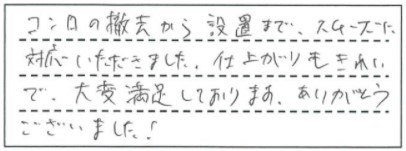 コンロの撤去から設置まで、スムーズに
対応いただきました。仕上がりもきれい
で、大変満足しております。ありがとう
ございました！